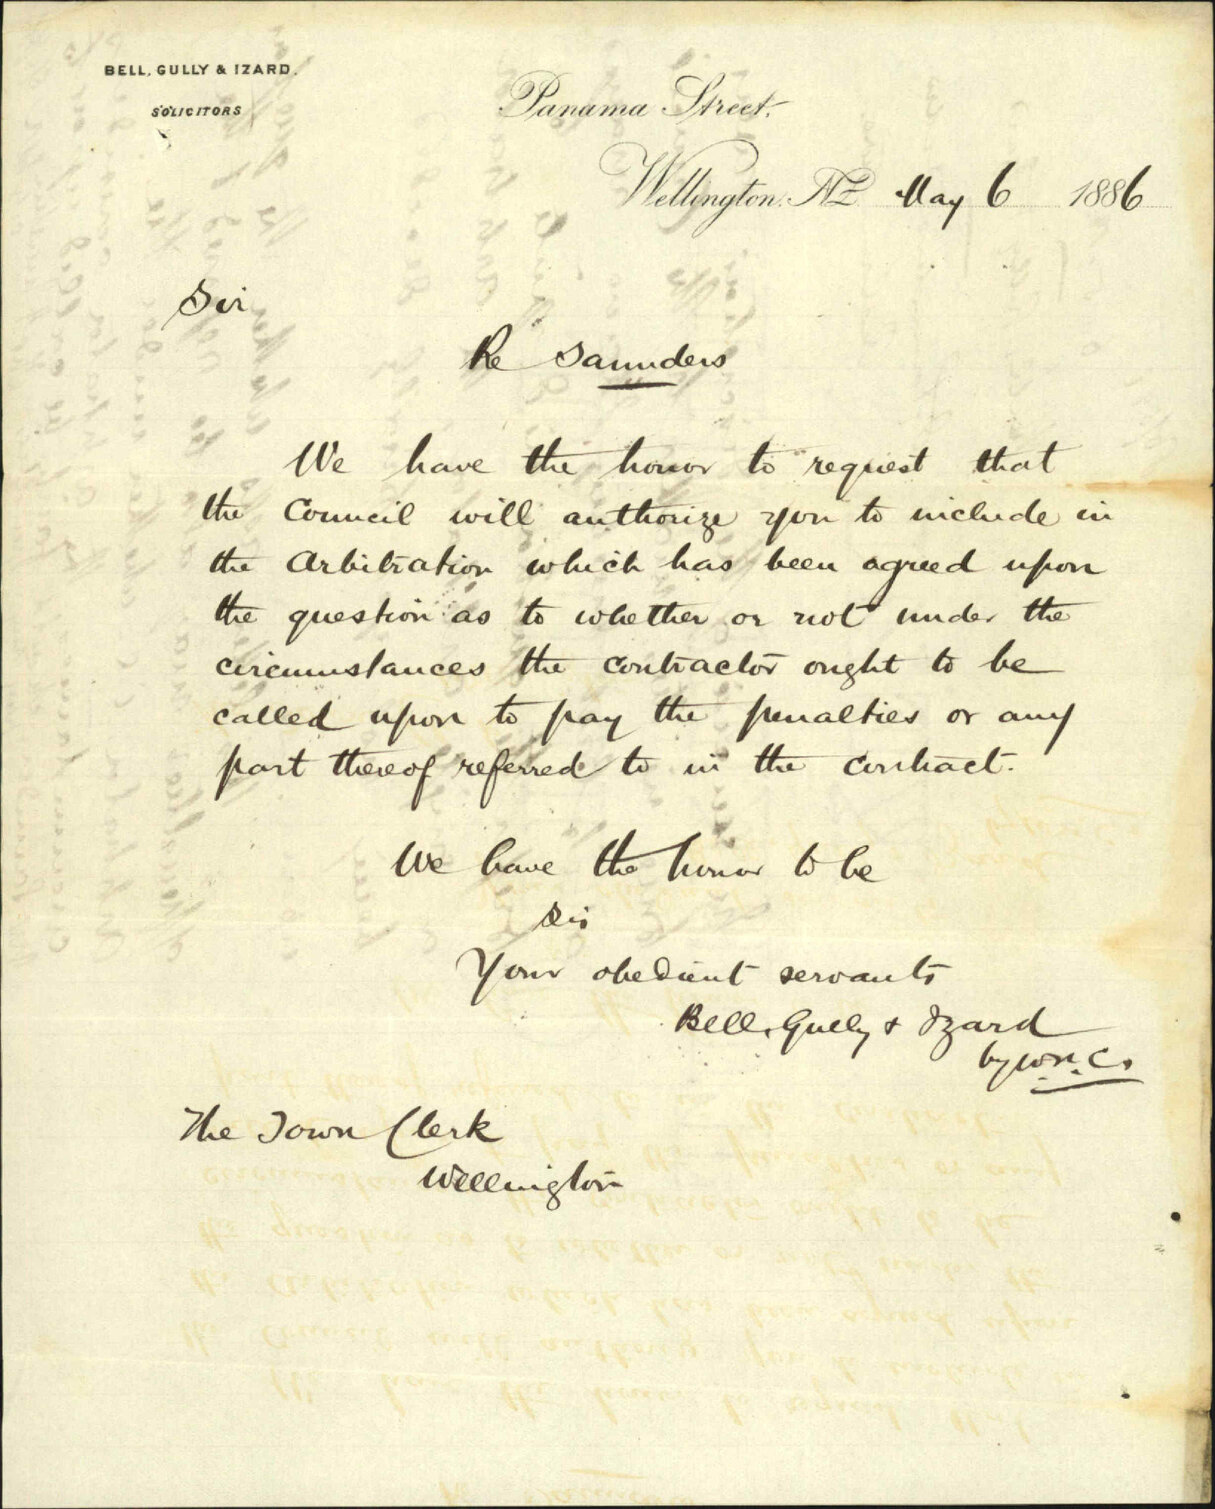 BELL, GULLY & IZARD.
SOLICITORS
Panama Street,
Wellington. NZ May 6 1886
Sir
Re Saunders
We have the honor to request that
the Council will authorize you to include in
the Arbitration which has been agreed upon
the question as to whether or not under the
circumstances the contractor ought to be
called upon to pay the penalties or any
part thereof referred to in the contract.
We have the honor to be
Sir
Your obedient servants
Bell, Gully & Izard
by
The Town Clerk
Wellington